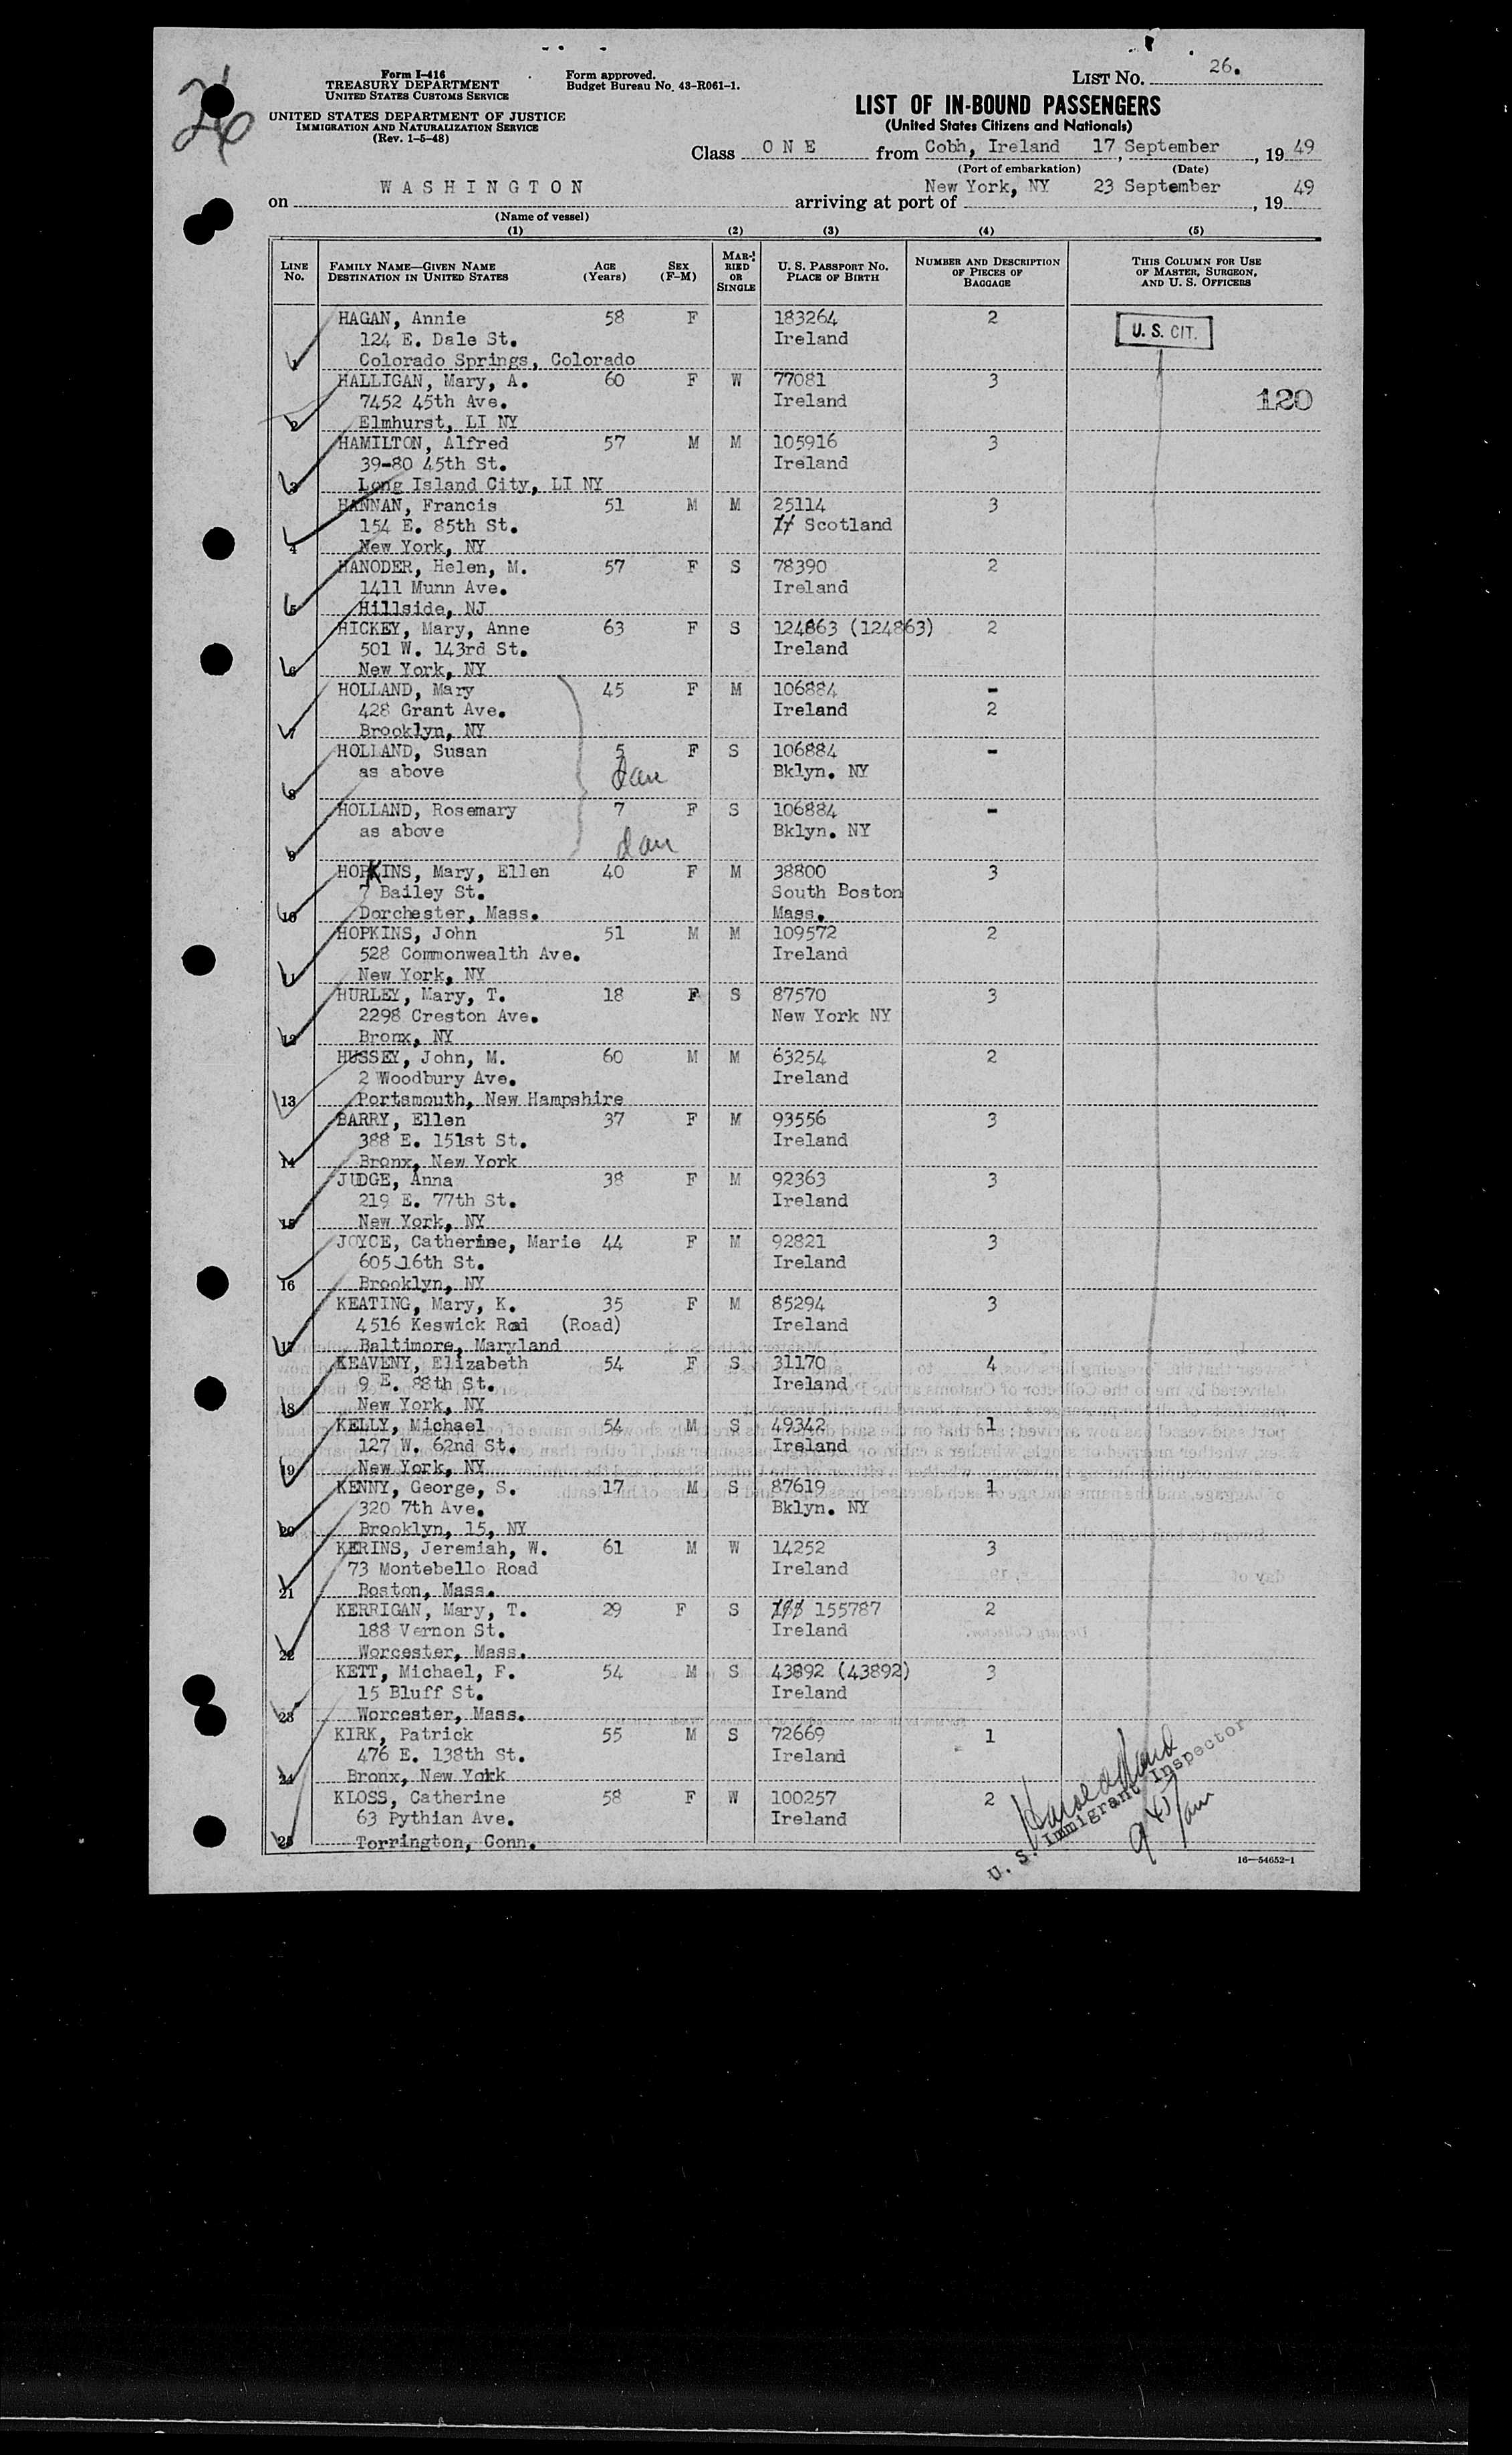 26
Form I-416
TREASURY DEPARTMENT
UNITED STATES CUSTOMS SERVICE
UNITED STATES DEPARTMENT OF JUSTICE
IMMIGRATION AND NATURALIZATION SERVICE
(Rev. 1-5-48)
Form approved.
Budget Bureau No. 43-R061-1.
LIST NO. 26.
LIST OF IN-BOUND PASSENGERS
(United States Citizens and Nationals)
Class O N E from Cobh, Ireland 17, September, 19 49
(Port of embarkation) (Date)
on W A S H I N G T O N arriving at port of New York, NY 23 September, 19 49
(Name of vessel)
(1) (2) (3) (4) (5)
LINE No. FAMILY NAME—GIVEN NAME DESTINATION IN UNITED STATES AGE (Years) SEX (F-M) MARRIED OR SINGLE U. S. PASSPORT NO. PLACE OF BIRTH NUMBER AND DESCRIPTION OF PIECES OF BAGGAGE THIS COLUMN FOR USE OF MASTER, SURGEON, AND U. S. OFFICERS
HAGAN, Annie 58 F 183264 2
124 E. Dale St. Ireland U. S. CIT.
1 Colorado Springs, Colorado
HALLIGAN, Mary, A. 60 F W 77081 3
7452 45th Ave. Ireland 120
2 Elmhurst, LI NY
HAMILTON, Alfred 57 M M 105916 3
39-80 45th St. Ireland
3 Long Island City, LI NY
HANNAN, Francis 51 M M 25114 3
154 E. 85th St. Scotland
4 New York, NY
HANODER, Helen, M. 57 F S 78390 2
1411 Munn Ave. Ireland
5 Hillside, NJ
HICKEY, Mary, Anne 63 F S 124863 (124863) 2
501 W. 143rd St. Ireland
6 New York, NY
HOLLAND, Mary 45 F M 106884 -
428 Grant Ave. Ireland 2
7 Brooklyn, NY
HOLLAND, Susan 5 F S 106884 -
as above dau Bklyn. NY
8
HOLLAND, Rosemary 7 F S 106884 -
as above dau Bklyn. NY
9
HOPKINS, Mary, Ellen 40 F M 38800 3
7 Bailey St. South Boston
10 Dorchester, Mass. Mass.
HOPKINS, John 51 M M 109572 2
528 Commonwealth Ave. Ireland
11 New York, NY
HURLEY, Mary, T. 18 F S 87570 3
2298 Creston Ave. New York NY
12 Bronx, NY
HUSSEY, John, M. 60 M M 63254 2
2 Woodbury Ave. Ireland
13 Portsmouth, New Hampshire
BARRY, Ellen 37 F M 93556 3
388 E. 151st St. Ireland
14 Bronx, New York
JUDGE, Anna 38 F M 92363 3
219 E. 77th St. Ireland
15 New York, NY
JOYCE, Catherine, Marie 44 F M 92821 3
605 16th St. Ireland
16 Brooklyn, NY
KEATING, Mary, K. 35 F M 85294 3
4516 Keswick Rod (Road) Ireland
17 Baltimore, Maryland
KEAVENY, Elizabeth 54 F S 31170 4
9 E. 88th St. Ireland
18 New York, NY
KELLY, Michael 54 M S 49342 1
127 W. 62nd St. Ireland
19 New York, NY
KENNY, George, S. 17 M S 87619 1
320 7th Ave. Bklyn. NY
20 Brooklyn, 15, NY
KERINS, Jeremiah, W. 61 M W 14252 3
73 Montebello Road Ireland
21 Boston, Mass.
KERRIGAN, Mary, T. 29 F S 155787 2
188 Vernon St. Ireland
22 Worcester, Mass.
KETT, Michael, F. 54 M S 43892 (43892) 3
15 Bluff St. Ireland
23 Worcester, Mass.
KIRK, Patrick 55 M S 72669 1
476 E. 138th St. Ireland
24 Bronx, New York
KLOSS, Catherine 58 F W 100257 2
63 Pythian Ave. Ireland
25 Torrington, Conn.
U. S. Immigrant Inspector
16—54652-1